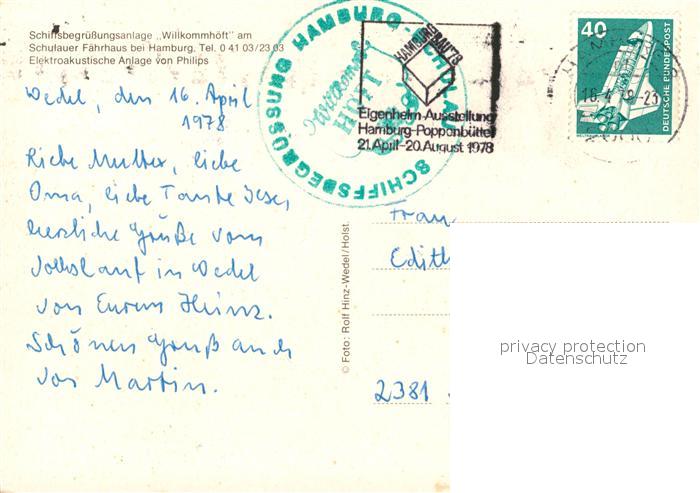 Schiffsbegrüßungsanlage „Willkommhöft" am
Schulauer Fährhaus bei Hamburg, Tel. 0 41 03/23 03
Elektroakustische Anlage von Philips
Wedel, den 16. April
1978
Liebe Mutter, liebe
Oma, liebe Tante Ilse,
herzliche Grüße vom
Volkslauf in Wedel
von Eurem Heinz.
Schönen Gruß auch
von Martin.
SCHIFFSBEGRÜSSUNG HAMBURG-SCHULAU
Willkomm
HÖFT
HAMBURGBAU '78
Eigenheim-Ausstellung
Hamburg-Poppenbüttel
21. April-20. August 1978
40
DEUTSCHE BUNDESPOST
© Foto: Rolf Hinz-Wedel/Holst.
Frau
Edith
2381
privacy protection
Datenschutz